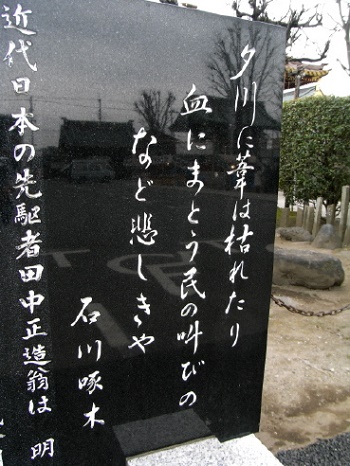 夕川に葦は枯れたり
血にまとう民の叫びの
など悲しきや
石川啄木
近代日本の先駆者田中正造翁は 明